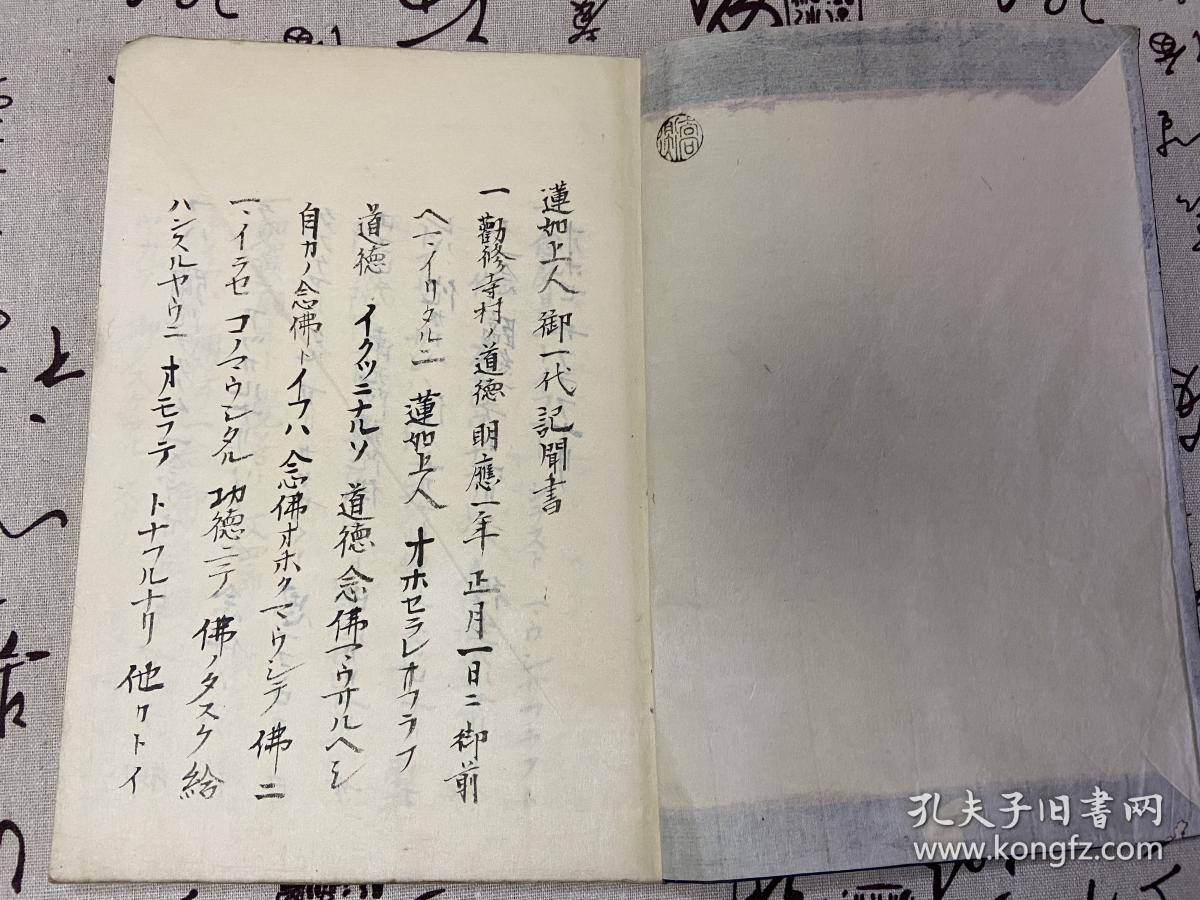 蓮如上人御一代記聞書
一 勸修寺村ノ道徳明應一年 正月一日ニ御前
ヘマイリタルニ 蓮如上人 オホセラレオフラフ
道徳 イクツニナルソ 道徳念佛マウサルヘシ
自力ノ念佛トイフハ 念佛オホクマウシテ佛ニ
マイラセ コノマウシタル 功徳ニテ 佛ノタスケ給
ハンスルヤウニ オモフテ トナフルナリ 他力トイ
孔夫子旧书网
www.kongfz.com